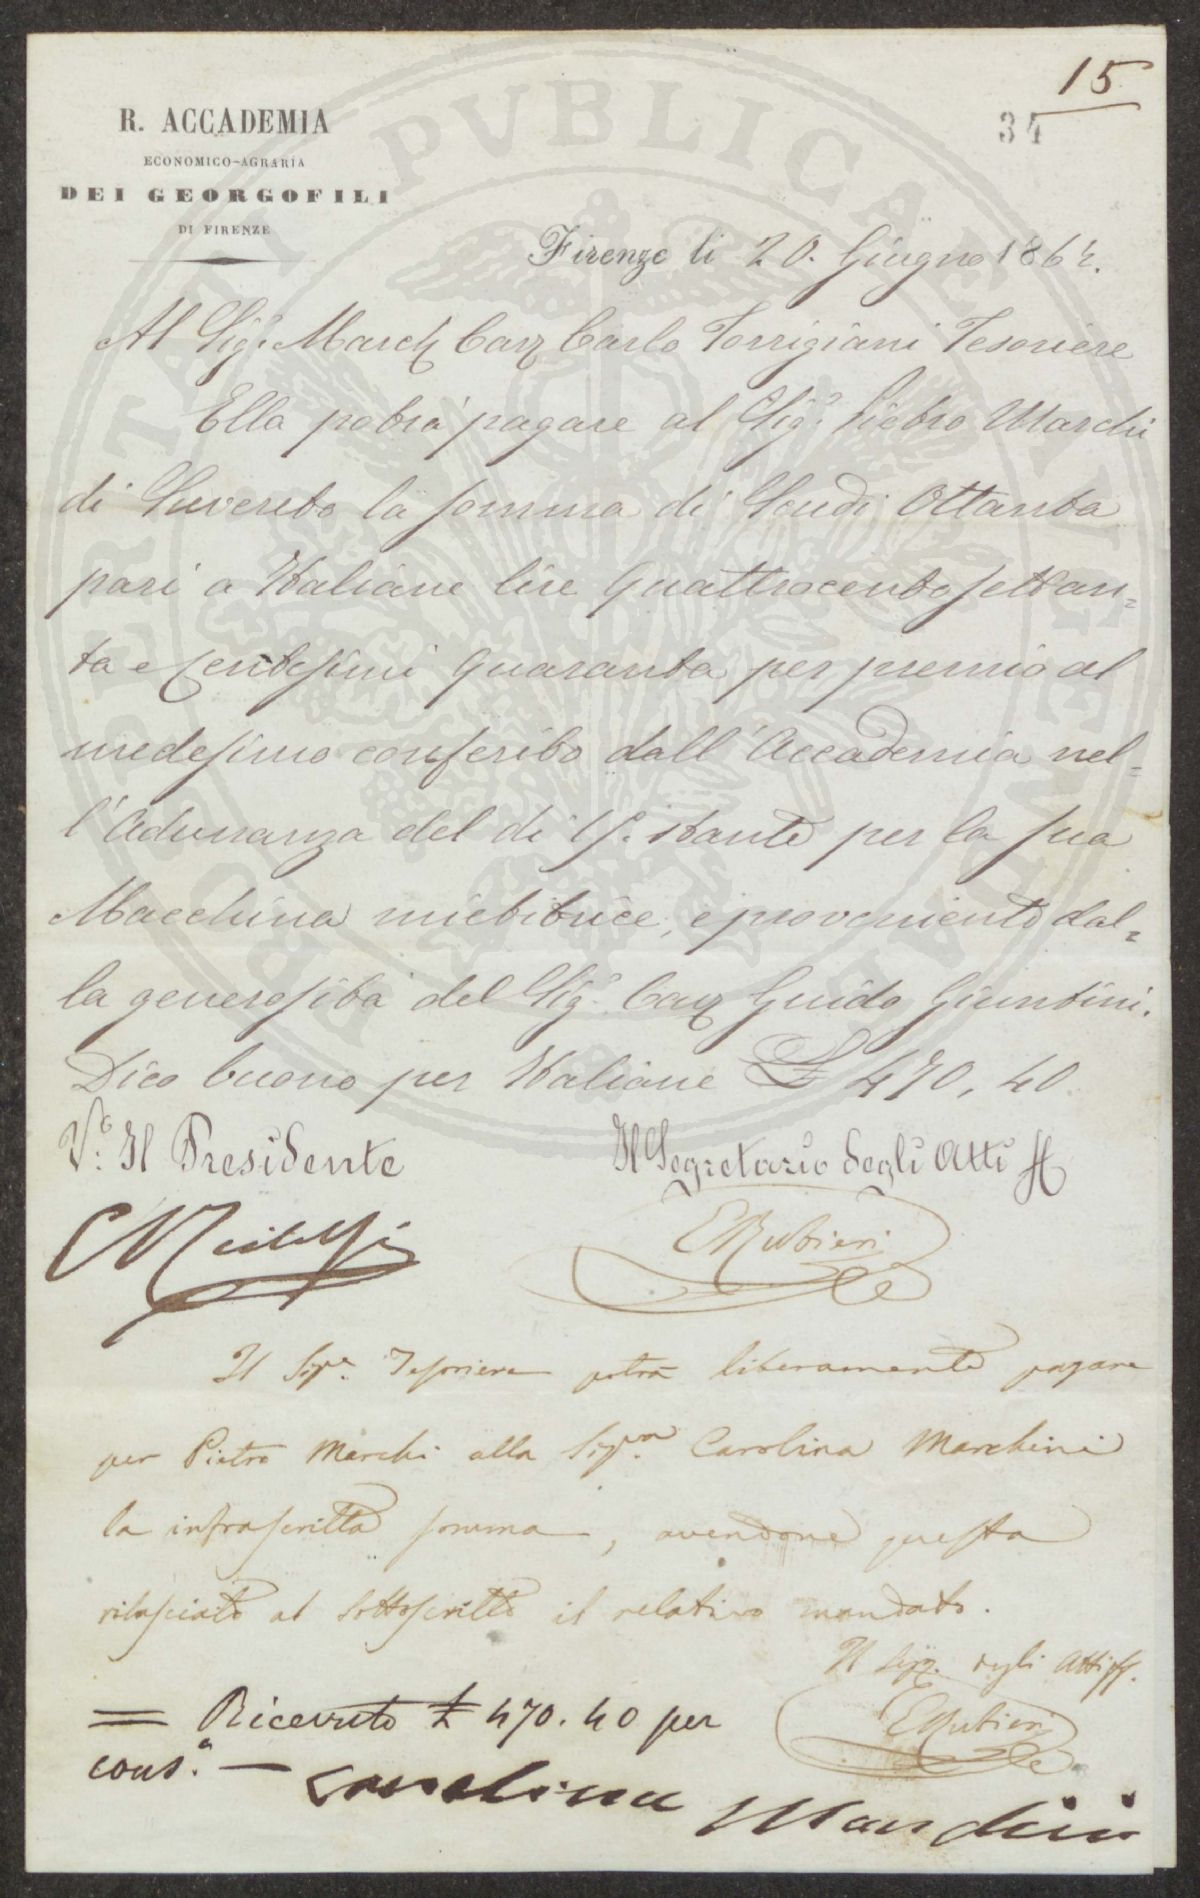 15
34
R. ACCADEMIA
ECONOMICO-AGRARIA
DEI GEORGOFILI
DI FIRENZE
Firenze li 20. Giugno 1862.
Al Sig.r March Cav Carlo Torrigiani Tesoriere
Ella potrà pagare al Sig.r Pietro Marchi
di Suvereto la somma di Scudi Ottanta
pari a Italiane lire Quattrocentosettan=
ta e Centesimi Quaranta per premio al
medesimo conferito dall'Accademia nel=
l'Adunanza del dì 15. stante per la sua
Macchina mietitrice, e proveniente dal=
la generosità del Sig.r Cav Guido Giuntini.
Dico buono per Italiane £ 470,40
V.o Il Presidente
Il Segretario degli Atti ff
C Ridolfi
E Rubieri
Il Sig.re Tesoriere potrà liberamente pagare
per Pietro Marchi alla Sig.ra Carolina Marchini
la infrascritta somma, avendone questa
rilasciato al sottoscritto il relativo mandato.
Il Seg. degli Atti ff.
E Rubieri
= Ricevuto £ 470.40 per
cons.a — Carolina Marchini
PUBLICAE